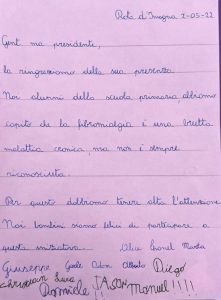 Rota d'Imagna 2-05-22
Gent. ma presidente,
la ringraziamo della sua presenza
Noi alunni della scuola primaria, abbiamo
capito che la fibromialgia è una brutta
malattia cronica, ma non è sempre
riconosciuta.
Per questo dobbiamo tenere alta l'attenzione
Noi bambini siamo felici di partecipare a
questa iniziativa. Alice Lionel Marta
Giuseppe Alberto Diego
Christian Luca
Daniele JASON Manuel !!!!